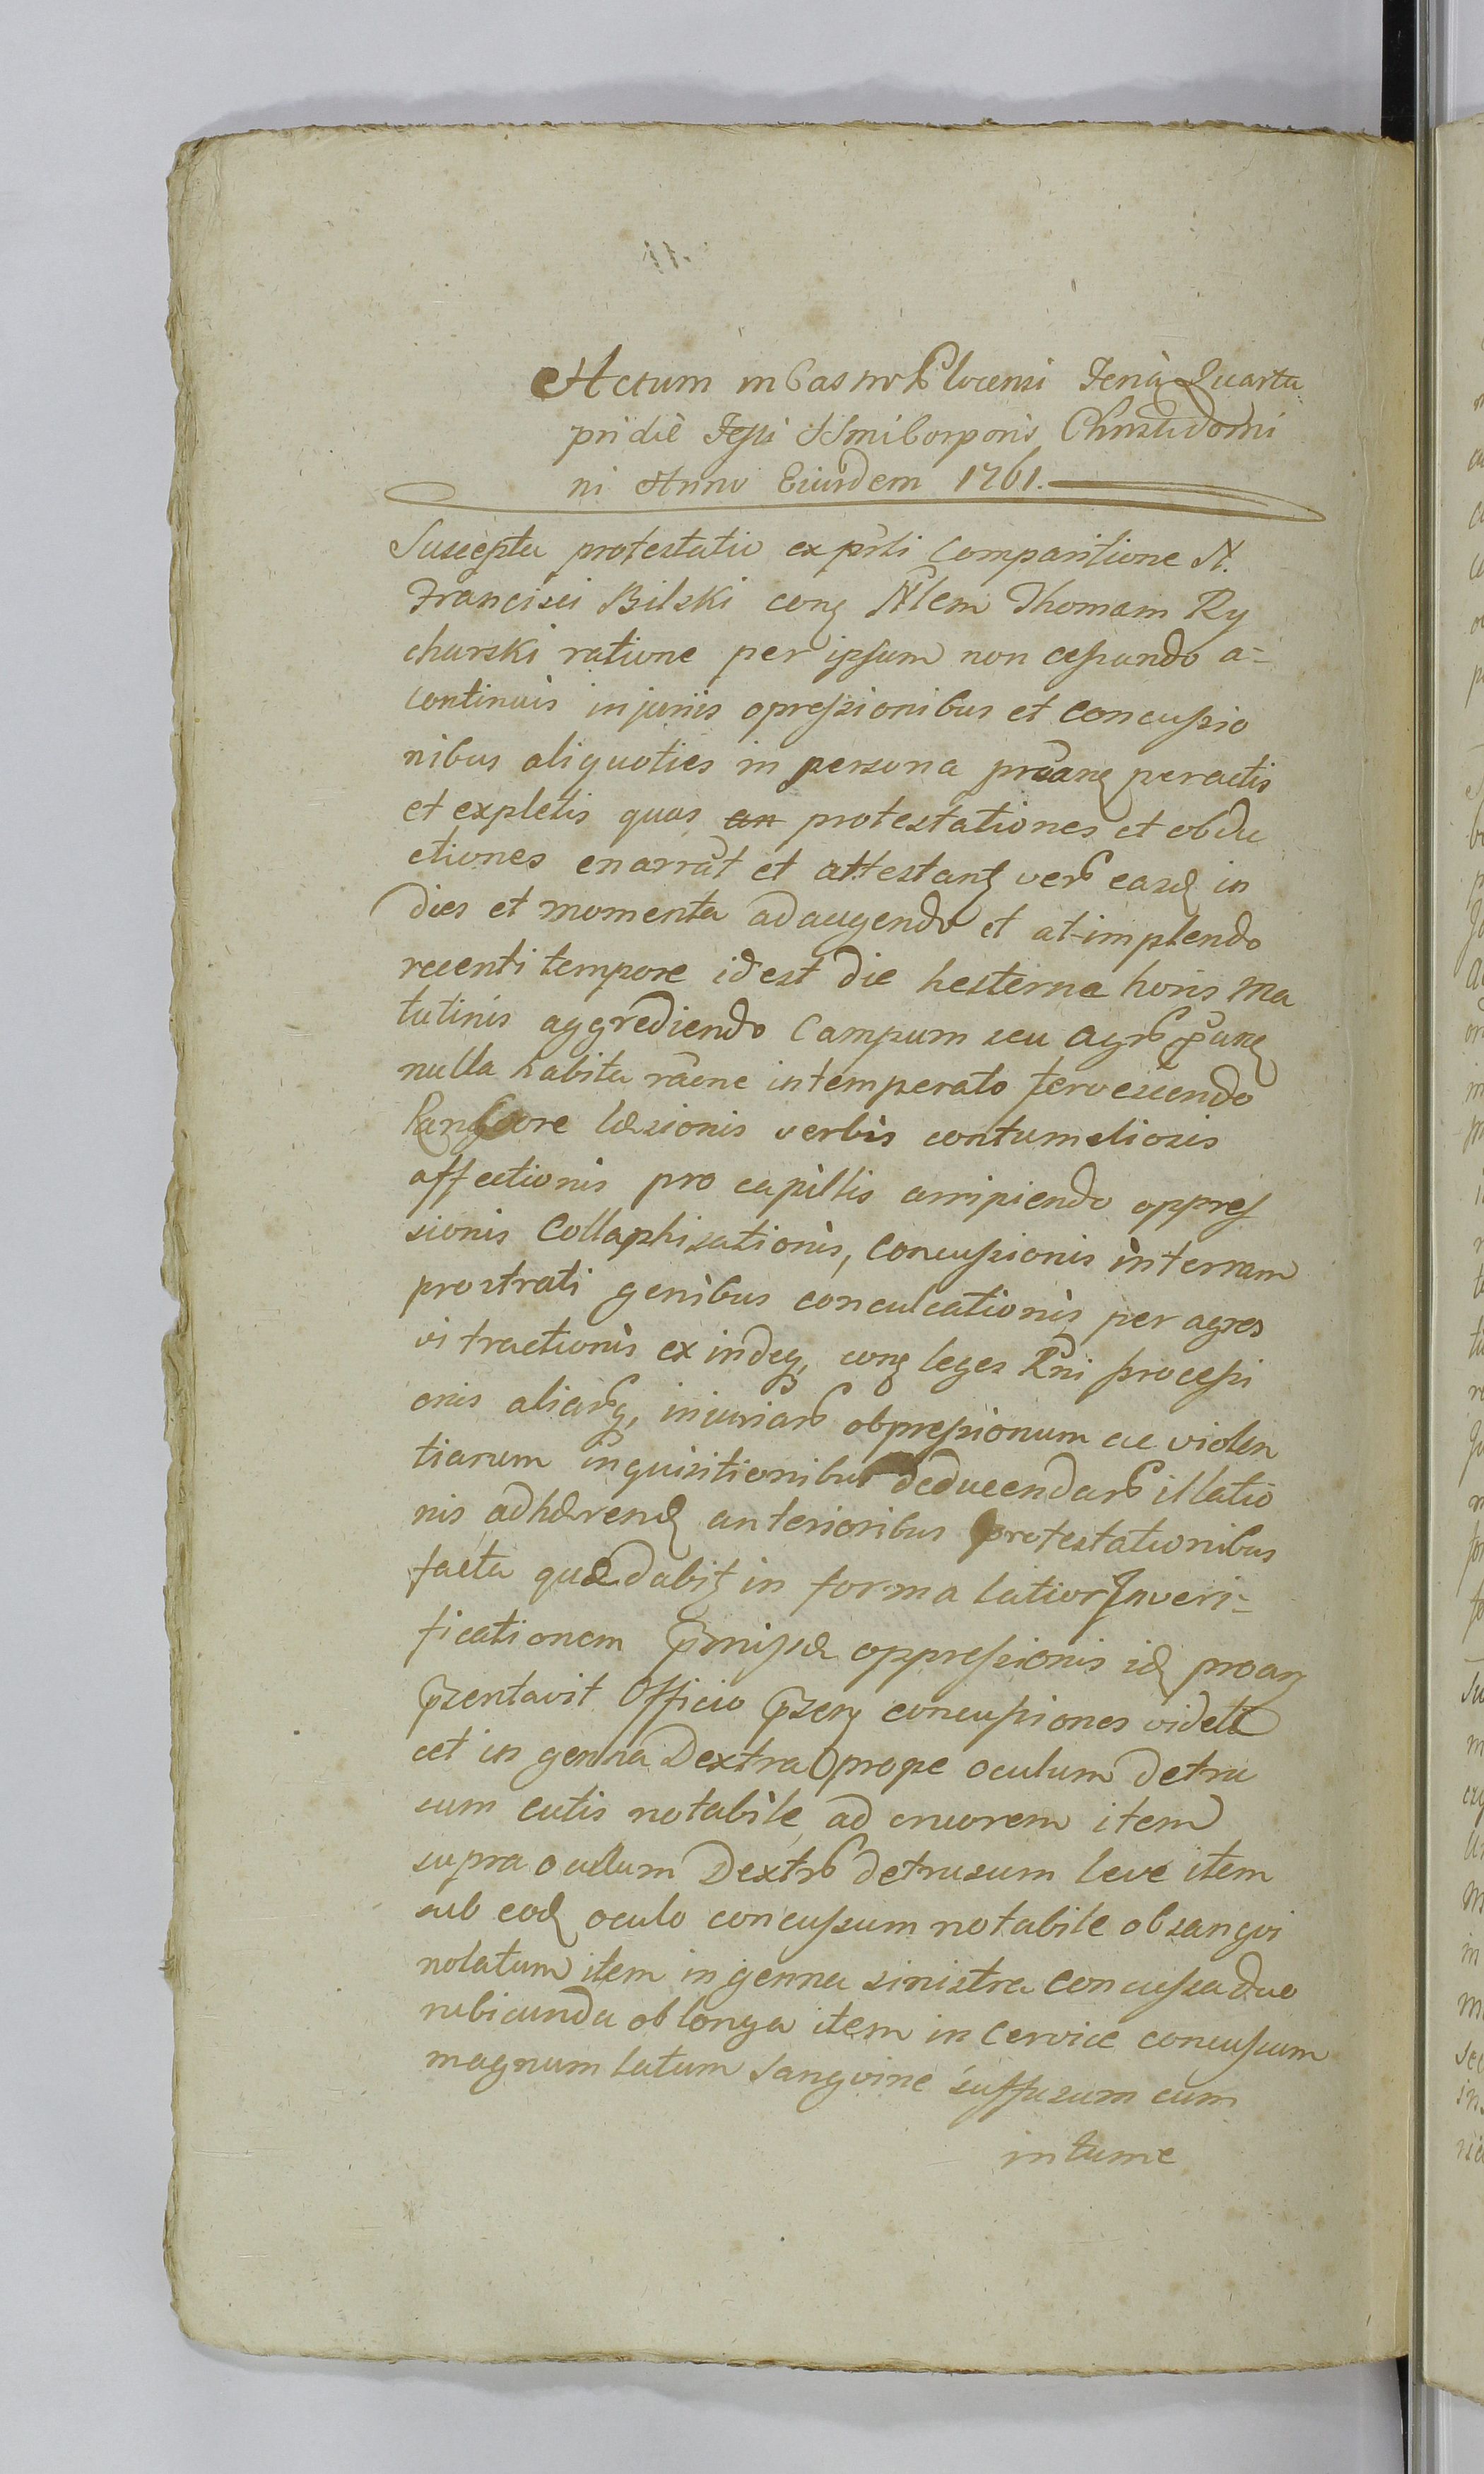 Actum in Castro Plocensi Feria Quarta
pridie Festi SSmi Corporis Christi Domi
ni Anno Eiusdem 1761.
Suscepta protestatio ex pnti Comparitione N.
Francisci Bilski conq Nlem Thomam Ry
charski ratione per ipsum non cessando a=
continuis injuriis opressionibus et concussio
nibus aliquoties in persona proanq peractis
et expletis quas an protestationes et obdu
ctiones enarrat et attestantq vero easq in
dies et momenta adaugendo et at-implendo
recenti tempore id est die hesterna horis ma
tutinis aggrediendo Campum seu agro panq
nulla habita raone intemperato fervescendo
Rangore læsionis verbis contumeliosis
affectionis pro capillis arripiendo oppres
sionis Collaphisationis, concussionis in terram
prostrati genibus conculcationis per agros
vi tractionis exindeq, conq leges Rni processi
onis aliarq, injuriar obpressionum ac violen
tiarum inquisitionibus deducendar illatio
nis adhærendq anterioribus protestationibus
facta quæ dabitq in forma latiori In veri=
ficationem pmissæ oppressionis idq proanq
psentavit Officio psenq concussiones videli
cet in genna Dextra prope oculum detru
sum cutis notabile ad cruorem item
supra oculum Dextro detrusum leve item
sub eodq oculo concussum notabile obsangvi
nolatum item in genna sinistra concussa duo
rubicunda oblonga item in cervice concussum
magnum latum sangvine suffusum cum
intume